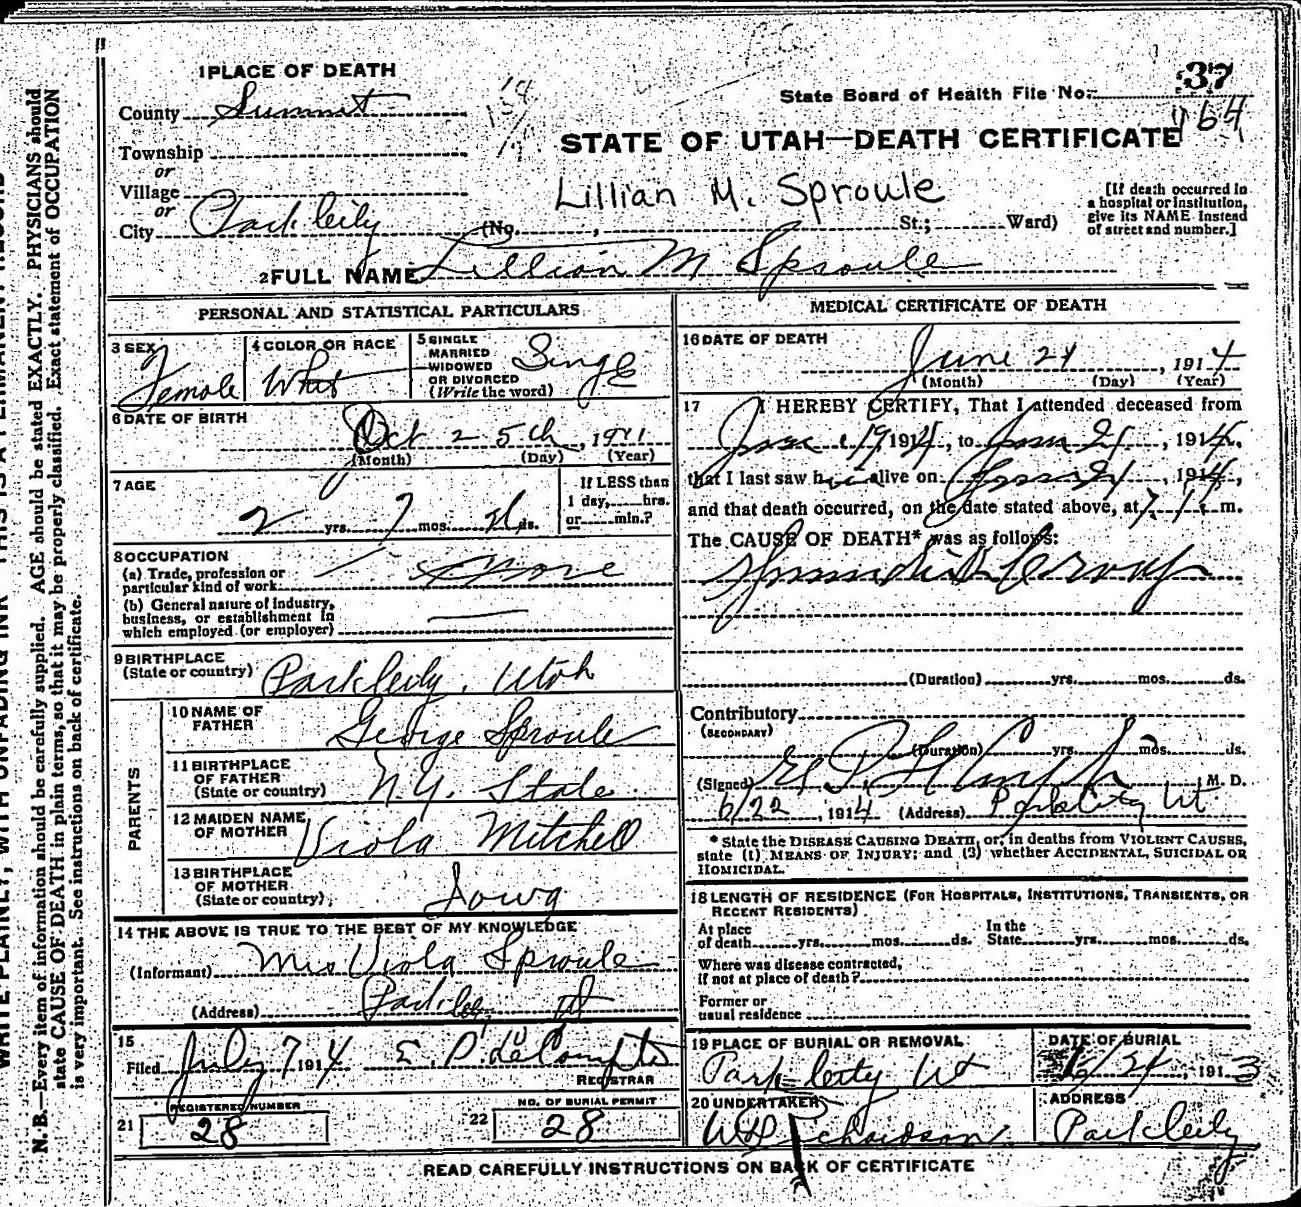 1 PLACE OF DEATH
County Summit
State Board of Health File No. 37
64
STATE OF UTAH—DEATH CERTIFICATE
Township
or
Village
or
City Park City (No. , St.; Ward)
Lillian M. Sproule
[If death occurred in
a hospital or institution,
give its NAME instead
of street and number.]
2 FULL NAME Lillian M Sproule
PERSONAL AND STATISTICAL PARTICULARS
3 SEX Female
4 COLOR OR RACE Whit
5 SINGLE
MARRIED
WIDOWED
OR DIVORCED
(Write the word) Single
6 DATE OF BIRTH
Oct 25th, 1911
(Month) (Day) (Year)
7 AGE
2 yrs. 7 mos. ds.
If LESS than
1 day, hrs.
or min.?
8 OCCUPATION
(a) Trade, profession or
particular kind of work None
(b) General nature of industry,
business, or establishment in
which employed (or employer)
9 BIRTHPLACE
(State or country) Park City, Utah
PARENTS
10 NAME OF
FATHER George Sproule
11 BIRTHPLACE
OF FATHER
(State or country) N.Y. State
12 MAIDEN NAME
OF MOTHER Viola Mitchell
13 BIRTHPLACE
OF MOTHER
(State or country) Iowa
14 THE ABOVE IS TRUE TO THE BEST OF MY KNOWLEDGE
(Informant) Mrs Viola Sproule
(Address) Park City, Ut
15
Filed July 7 1914 E. P. deCompte
REGISTRAR
REGISTERED NUMBER
21 28
NO. OF BURIAL PERMIT
22 28
MEDICAL CERTIFICATE OF DEATH
16 DATE OF DEATH
June 21, 1914
(Month) (Day) (Year)
17 I HEREBY CERTIFY, That I attended deceased from
June 19 1914, to June 21, 1914,
that I last saw h alive on June 21, 1914,
and that death occurred, on the date stated above, at 7 m.
The CAUSE OF DEATH* was as follows:
Croup
(Duration) yrs. mos. ds.
Contributory
(SECONDARY)
(Duration) yrs. mos. ds.
(Signed) M. D.
6/22, 1914 (Address) Park City Ut
* State the DISEASE CAUSING DEATH, or, in deaths from VIOLENT CAUSES,
state (1) MEANS OF INJURY; and (2) whether ACCIDENTAL, SUICIDAL OR
HOMICIDAL.
18 LENGTH OF RESIDENCE (FOR HOSPITALS, INSTITUTIONS, TRANSIENTS, OR
RECENT RESIDENTS)
At place
of death yrs. mos. ds.
In the
State yrs. mos. ds.
Where was disease contracted,
if not at place of death?
Former or
usual residence
19 PLACE OF BURIAL OR REMOVAL
Park City Ut
DATE OF BURIAL
6/24, 1913
20 UNDERTAKER
W Richardson
ADDRESS
Park City
READ CAREFULLY INSTRUCTIONS ON BACK OF CERTIFICATE
N. B.—Every item of information should be carefully supplied. AGE should be stated EXACTLY. PHYSICIANS should
state CAUSE OF DEATH in plain terms, so that it may be properly classified. Exact statement of OCCUPATION
is very important. See instructions on back of certificate.